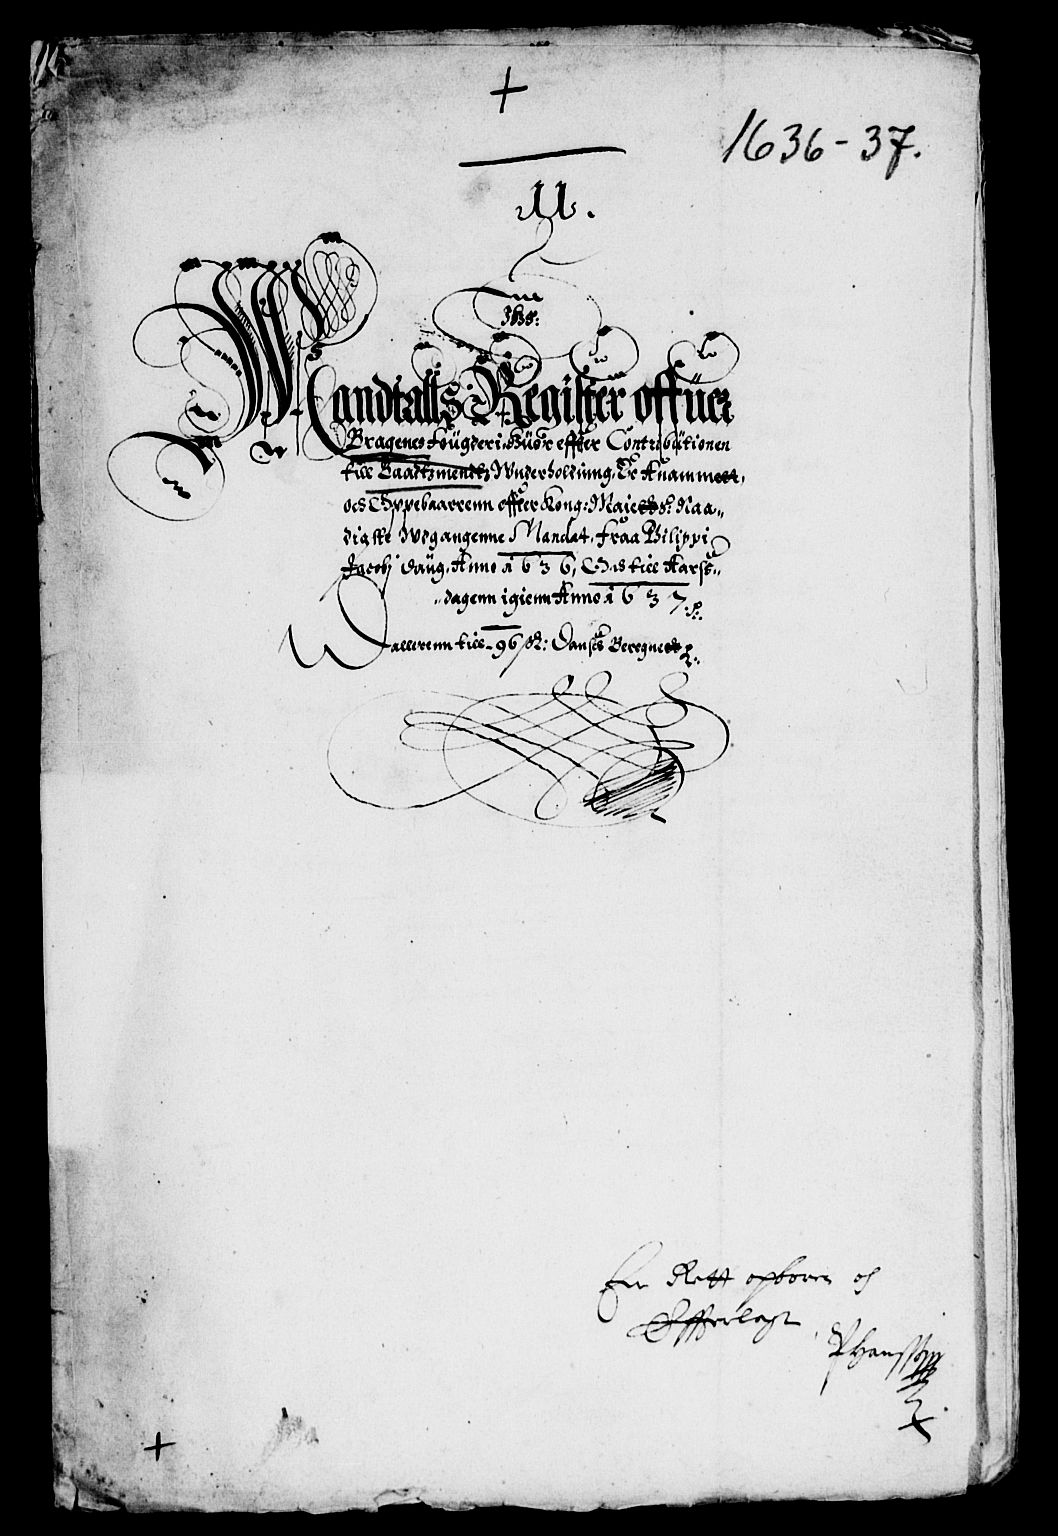 1636-37.
11.
Mandtalls Register offuer
Bragenes fougderi, Huor effter Contributionen
till Baadtzmends Wnderholdning, Er Anammett,
och Oppebaarrenn effter Kong: Maiedtz: Naa„
digste Wdgangenne Mandat, fraa Philippi
Jacobj daug, Anno 1636, Och till Karss„
„dagenn igienn Anno 1637.
Wallerenn till 96 Danske Beregnedt
Er Rett opboren och
Efferlagt
PHanssen